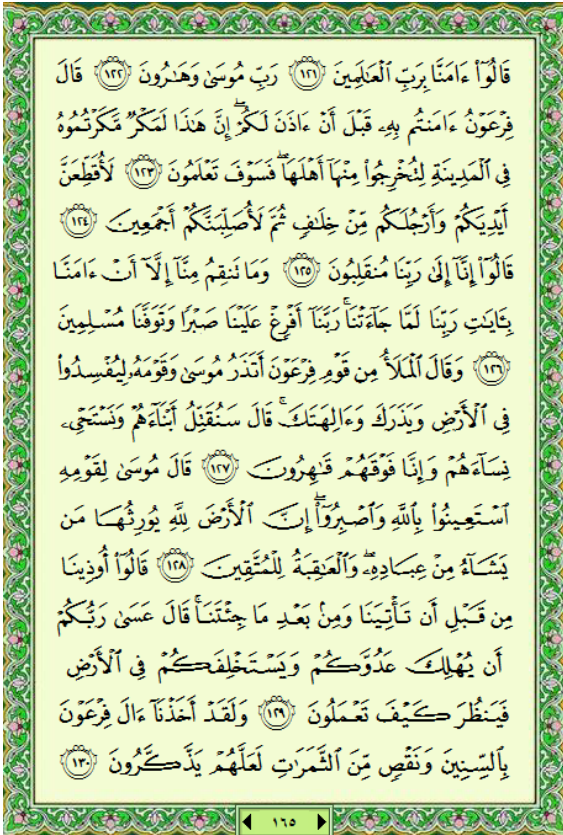 قَالُوٓا۟ ءَامَنَّا بِرَبِّ ٱلْعَـٰلَمِينَ ١٢١ رَبِّ مُوسَىٰ وَهَـٰرُونَ ١٢٢ قَالَ
فِرْعَوْنُ ءَامَنتُم بِهِۦ قَبْلَ أَنْ ءَاذَنَ لَكُمْ ۖ إِنَّ هَـٰذَا لَمَكْرٌ مَّكَرْتُمُوهُ
فِى ٱلْمَدِينَةِ لِتُخْرِجُوا۟ مِنْهَآ أَهْلَهَا ۖ فَسَوْفَ تَعْلَمُونَ ١٢٣ لَأُقَطِّعَنَّ
أَيْدِيَكُمْ وَأَرْجُلَكُم مِّنْ خِلَـٰفٍ ثُمَّ لَأُصَلِّبَنَّكُمْ أَجْمَعِينَ ١٢٤
قَالُوٓا۟ إِنَّآ إِلَىٰ رَبِّنَا مُنقَلِبُونَ ١٢٥ وَمَا تَنقِمُ مِنَّآ إِلَّآ أَنْ ءَامَنَّا
بِـَٔايَـٰتِ رَبِّنَا لَمَّا جَآءَتْنَا ۚ رَبَّنَآ أَفْرِغْ عَلَيْنَا صَبْرًا وَتَوَفَّنَا مُسْلِمِينَ
١٢٦ وَقَالَ ٱلْمَلَأُ مِن قَوْمِ فِرْعَوْنَ أَتَذَرُ مُوسَىٰ وَقَوْمَهُۥ لِيُفْسِدُوا۟
فِى ٱلْأَرْضِ وَيَذَرَكَ وَءَالِهَتَكَ ۚ قَالَ سَنُقَتِّلُ أَبْنَآءَهُمْ وَنَسْتَحْىِۦ
نِسَآءَهُمْ وَإِنَّا فَوْقَهُمْ قَـٰهِرُونَ ١٢٧ قَالَ مُوسَىٰ لِقَوْمِهِ
ٱسْتَعِينُوا۟ بِٱللَّهِ وَٱصْبِرُوٓا۟ ۖ إِنَّ ٱلْأَرْضَ لِلَّهِ يُورِثُهَا مَن
يَشَآءُ مِنْ عِبَادِهِۦ ۖ وَٱلْعَـٰقِبَةُ لِلْمُتَّقِينَ ١٢٨ قَالُوٓا۟ أُوذِينَا
مِن قَبْلِ أَن تَأْتِيَنَا وَمِنۢ بَعْدِ مَا جِئْتَنَا ۚ قَالَ عَسَىٰ رَبُّكُمْ
أَن يُهْلِكَ عَدُوَّكُمْ وَيَسْتَخْلِفَكُمْ فِى ٱلْأَرْضِ
فَيَنظُرَ كَيْفَ تَعْمَلُونَ ١٢٩ وَلَقَدْ أَخَذْنَآ ءَالَ فِرْعَوْنَ
بِٱلسِّنِينَ وَنَقْصٍ مِّنَ ٱلثَّمَرَٰتِ لَعَلَّهُمْ يَذَّكَّرُونَ ١٣٠
١٦٥